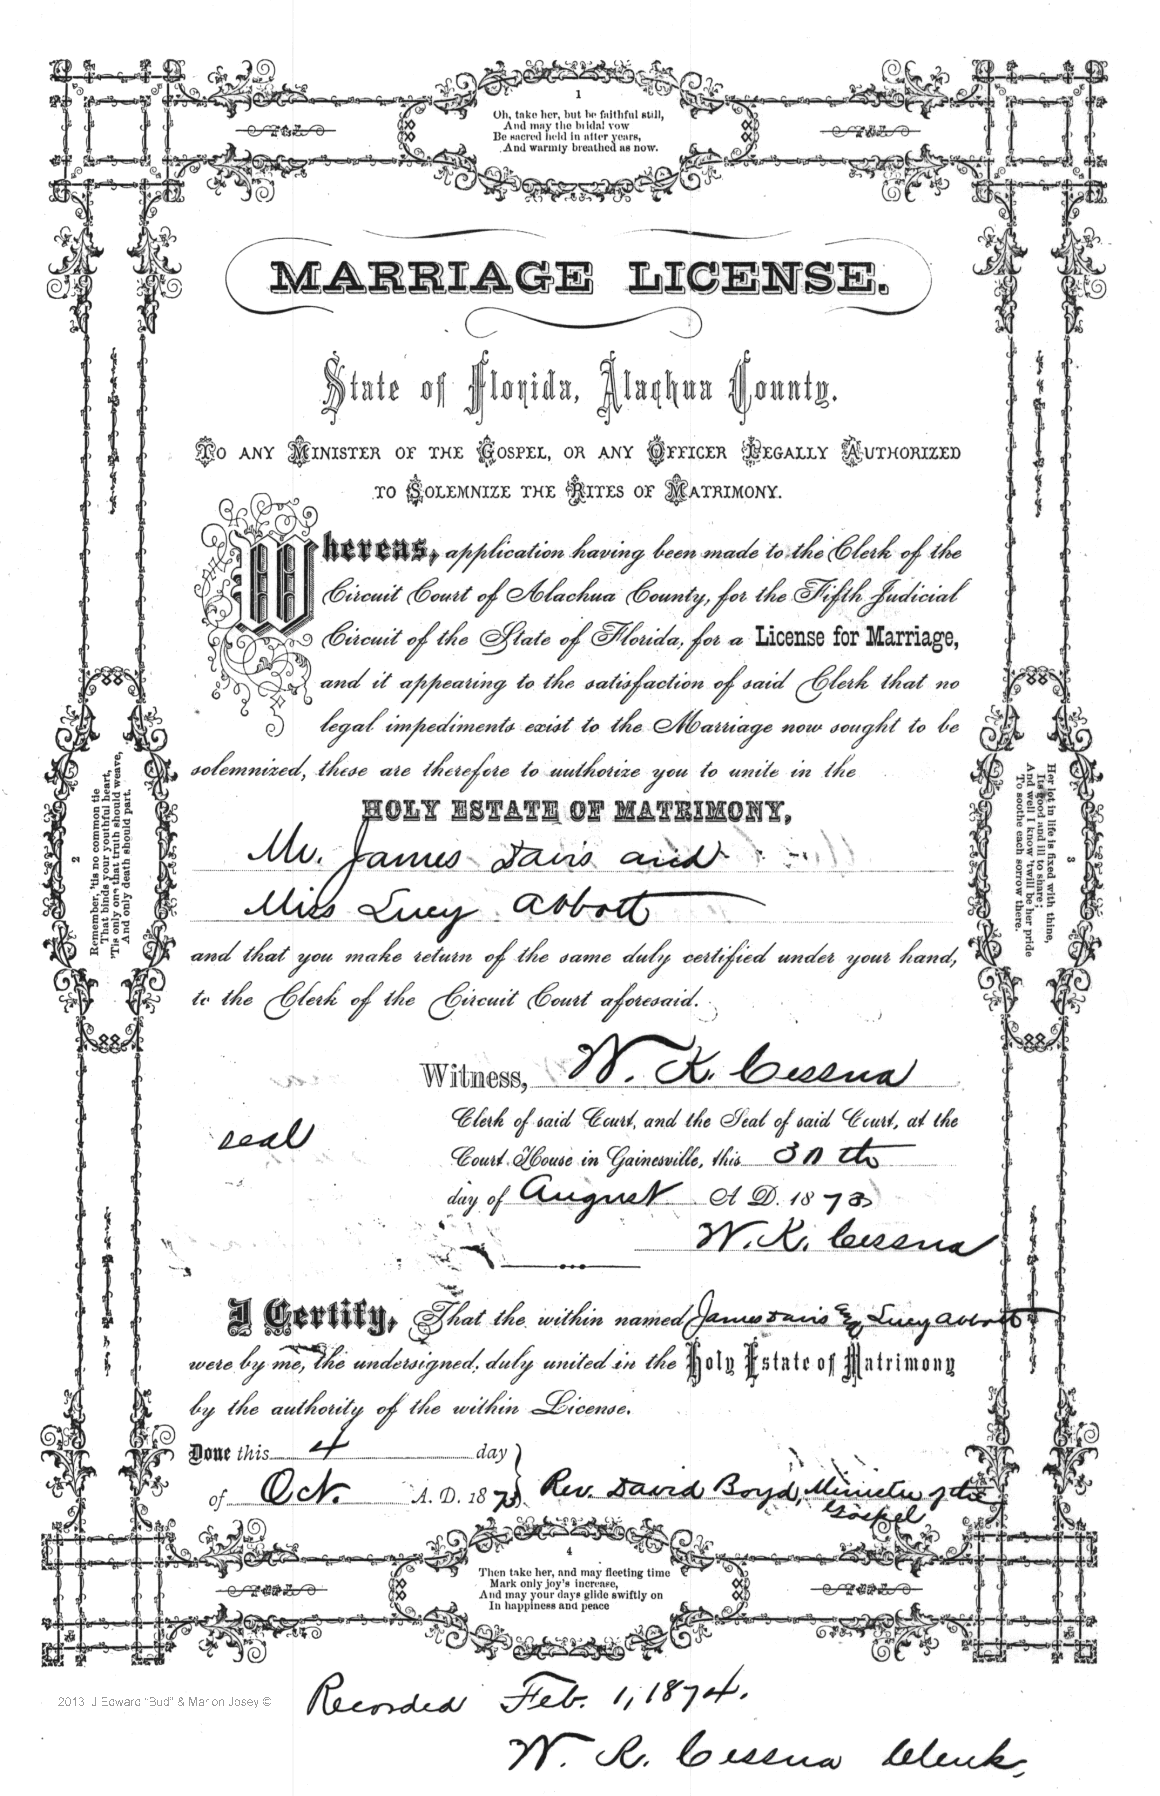 1
Oh, take her, but be faithful still,
And may the bridal vow
Be sacred held in after years,
And warmly breathed as now.
MARRIAGE LICENSE.
State of Florida, Alachua County.
TO ANY MINISTER OF THE GOSPEL, OR ANY OFFICER LEGALLY AUTHORIZED
TO SOLEMNIZE THE RITES OF MATRIMONY.
Whereas, application having been made to the Clerk of the
Circuit Court of Alachua County, for the Fifth Judicial
Circuit of the State of Florida, for a License for Marriage,
and it appearing to the satisfaction of said Clerk that no
legal impediments exist to the Marriage now sought to be
solemnized, these are therefore to authorize you to unite in the
HOLY ESTATE OF MATRIMONY,
Mr. James Davis and
Miss Lucy Abbott
and that you make return of the same duly certified under your hand,
to the Clerk of the Circuit Court aforesaid.
2
Remember, 'tis no common tie
That binds your youthful heart,
'Tis only one that truth should weave,
And only death should part.
3
Her lot in life is fixed with thine,
Its good and ill to share;
And well I know 'twill be her pride
To soothe each sorrow there.
Witness, W. K. Cessna
Clerk of said Court, and the Seal of said Court, at the
seal
Court House in Gainesville, this 30th
day of August A D. 1873
W. K. Cessna
I Certify, That the within named James Davis & Lucy Abbott
were by me, the undersigned, duly united in the Holy Estate of Matrimony
by the authority of the within License.
Done this 4 day
of Oct. A. D. 1873. Rev. David Boyd, Minister of the
Gospel
4
Then take her, and may fleeting time
Mark only joy's increase,
And may your days glide swiftly on
In happiness and peace
2013. J Edward "Bud" & Marion Josey ©
Recorded Feb. 1, 1874.
W. K. Cessna Clerk.